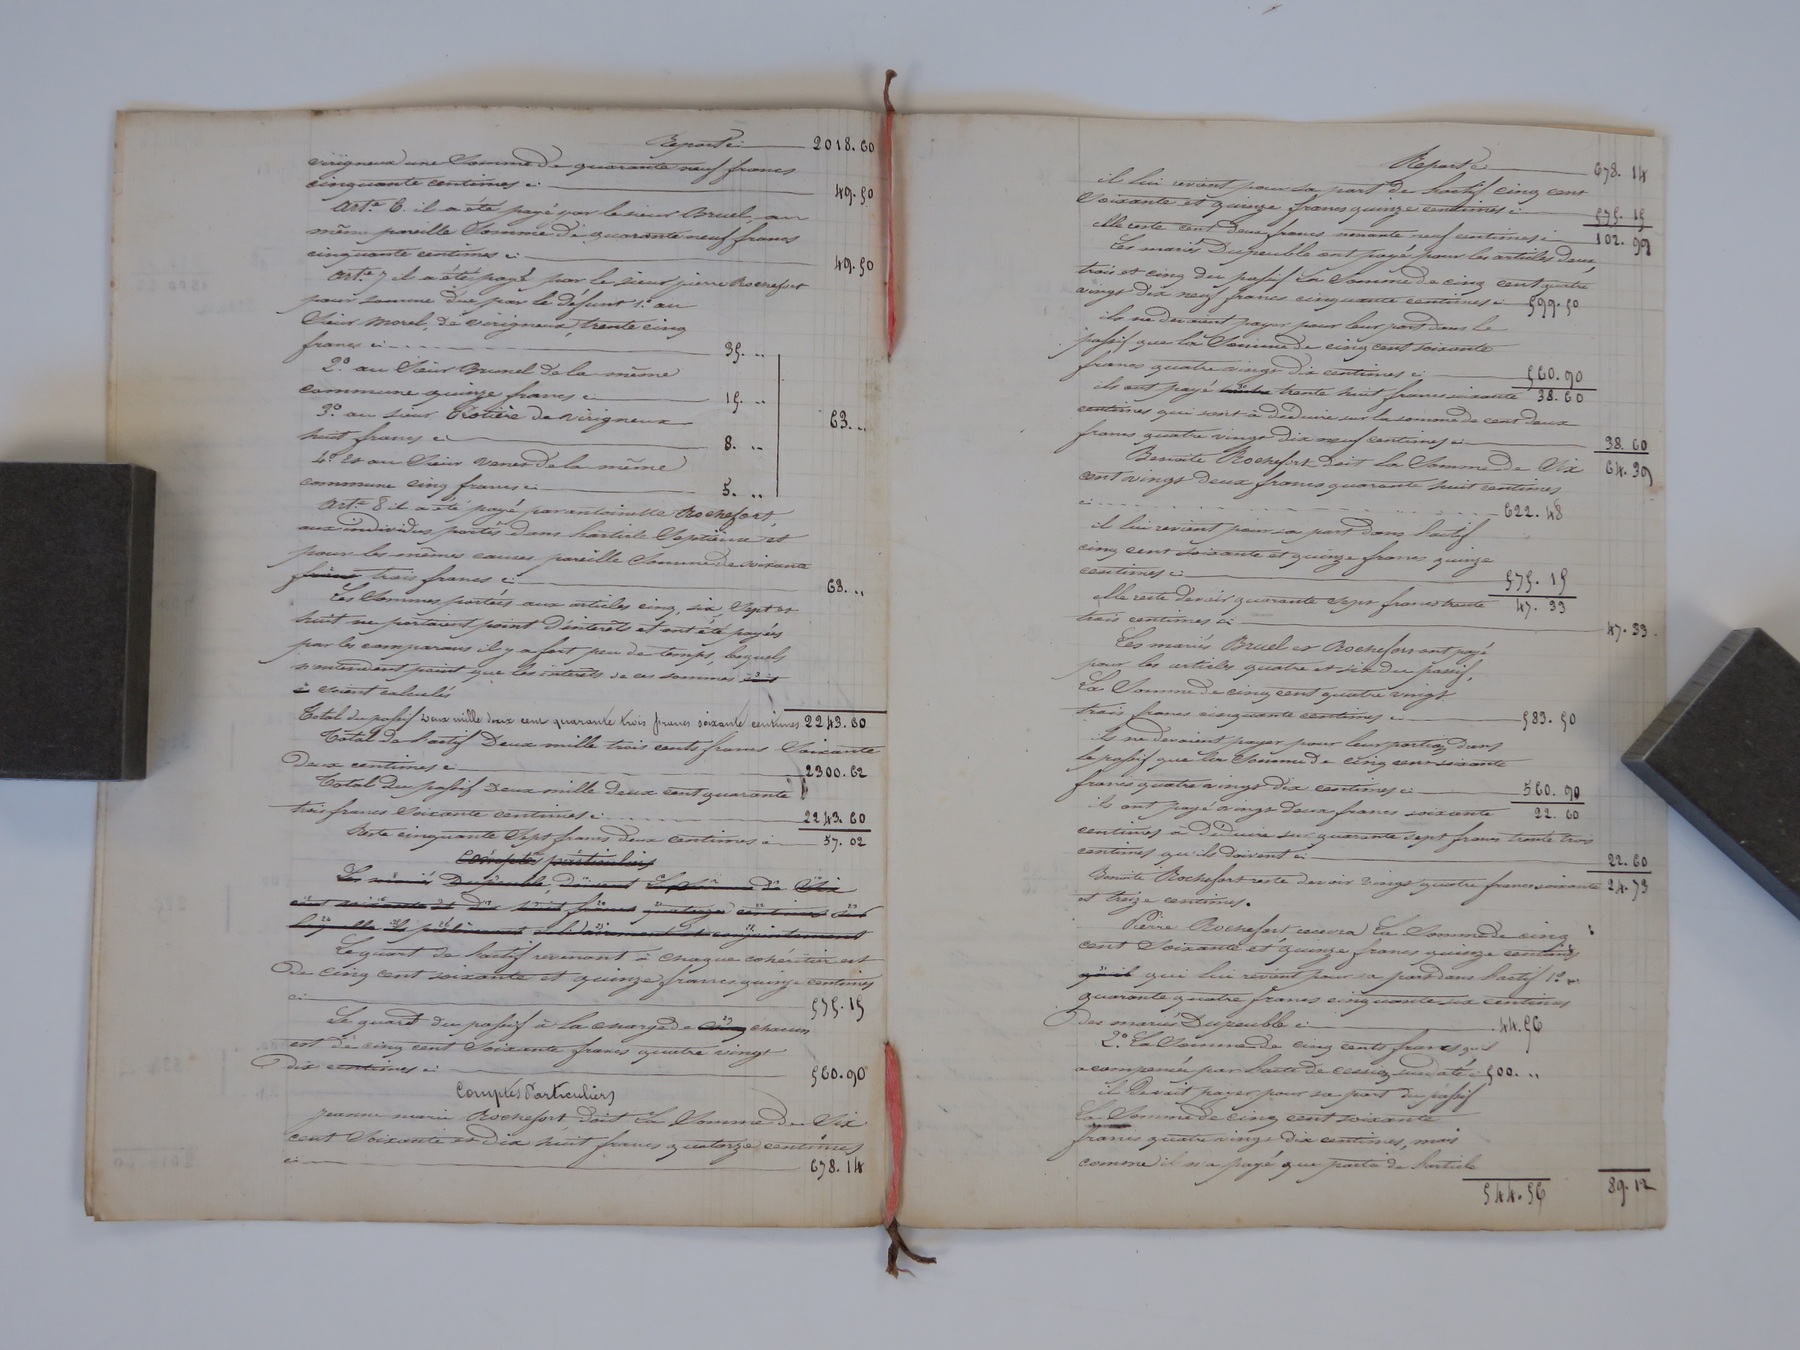 Report ci 2018.60
virigneux une Somme de quarante neuf francs
cinquante centimes ci 49.50
Arte 6. il a été payé par le sieur Bruel, au
même pareille Somme de quarante neuf francs
cinquante centimes ci 49.50
Arte 7 il a été payé par le sieur pierre Rochefort
pour somme due par le défunt 1.° au
Sieur Morel, de virigneux, trente cinq
francs ci 35. ..
2.° au Sieur Brunel de la même
commune quinze francs ci 15. ..
3.° au sieur de virigneux 63. ..
huit francs ci 8. ..
4.° Et au Sieur de la même
commune cinq francs ci 5. ..
Arte 8 il a été payé par antoinette Rochefort,
aux individus portés dans l'article Septième et
pour les mêmes causes pareille Somme de soixante
trois francs ci 63. ..
Les Sommes portées aux articles cinq, six, Sept et
huit ne portaient point d'intérêts et ont été payées
par les comparans il y a fort peu de temps, lesquels
n'entendent point que les intérêts de ces sommes
soient calculés
Total du passif Deux mille deux cent quarante trois francs soixante centimes 2243.60
Total de l'actif Deux mille trois cents francs Soixante
Deux centimes ci 2300.62
Total Du passif Deux mille Deux cent quarante
trois francs Soixante centimes ci 2243.60
Reste cinquante Sept francs Deux centimes ci 57.02
Comptes particuliers
Les mariés Dupeuble, doivent la Somme de Six
cent soixante et dix huit francs quatorze centimes sur
laquelle ils solidairement et conjointement
Le quart de l'actif revenant à chaque cohéritier est
De cinq cent soixante et quinze francs quinze centimes
ci 575.15
Le quart du passif à la charge de chacun
est de cinq cent Soixante francs quatre vingt
dix centimes ci 560.90
Comptes Particuliers
Jeanne marie Rochefort, doit La Somme de Six
cent Soixante et Dix huit francs quatorze centimes
ci 678.14
Report ci 678.14
il lui revient pour sa part de l'actif cinq cent
Soixante et quinze francs quinze centimes ci 575.15
elle reste cent Deux francs nonante neuf centimes ci 102.99
Les mariés Dupeuble ont payé pour les articles deux,
trois et cinq du passif La Somme de cinq cent quatre
vingt dix neuf francs cinquante centimes ci 599.50
ils ne devaient payer pour leur part dans le
passif que la Somme de cinq cent soixante
francs quatre vingt dix centimes ci 560.90
ils ont payé trente huit francs soixante 38.60
centimes qui sont à déduire sur la somme de cent deux
francs quatre vingt dix neuf centimes ci 38.60
Benoite Rochefort Doit La Somme de Six 64.39
cent vingt Deux francs quarante huit centimes
ci 622.48
il lui revient pour sa part dans l'actif
cinq cent soixante et quinze francs quinze
centimes ci 575.15
elle reste devoir quarante sept francs trente 47.33
trois centimes ci 47.33
Les mariés Bruel et Rochefort ont payé
pour les articles quatre et six du passif,
La Somme de cinq cent quatre vingt
trois francs cinquante centimes ci 583.50
ils ne devaient payer pour leur portion dans
le passif que La Somme de cinq cent soixante
francs quatre vingt dix centimes ci 560.90
ils ont payé vingt Deux francs soixante 22.60
centimes à déduire sur quarante sept francs trente trois
centimes qu'ils doivent ci 22.60
Benoite Rochefort reste devoir vingt quatre francs soixante 24.73
et treize centimes.
Pierre Rochefort recevra La Somme de cinq
cent Soixante et quinze francs quinze centimes
qui lui revient pour sa part dans l'actif 1.°
quarante quatre francs cinquante six centimes
des mariés Dupeuble ci 44.56
2.° La Somme de cinq cents francs qu'il
a compensée par l'acte de cession susdaté ci 500. ..
il Devait payer pour sa part du passif
La Somme de cinq cent soixante
francs quatre vingt dix centimes, mais
comme il n'a payé que partie de l'article
544.56 89.12